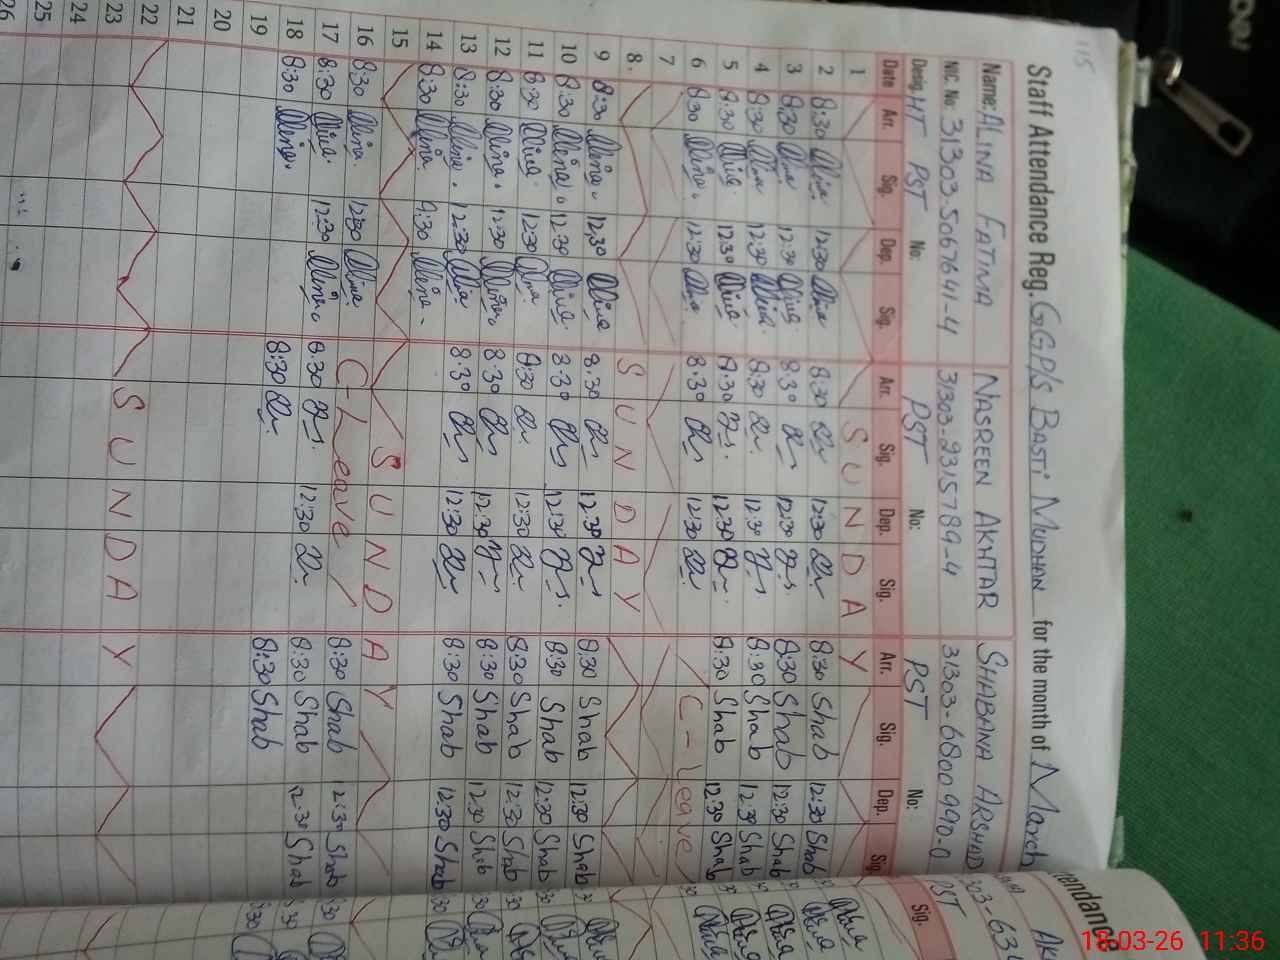 115
Staff Attendance Reg. GGP/s Basti Mudhan for the month of March
Name: ALINA FATIMA NASREEN AKHTAR SHABANA ARSHAD
NIC. No: 31303-5067641-4 31303-2315789-4 31303-6800990-0
Desig. HT PST No: PST No: PST No:
Date Arr. Sig. Dep. Sig. Arr. Sig. Dep. Sig. Arr. Sig. Dep. Sig.
1 SUNDAY
2 8:30 Alina 12:30 Alina 8:30 12:30 8:30 Shab 12:30 Shab
3 8:30 Alina 12:30 Alina 8:30 12:30 8:30 Shab 12:30 Shab
4 8:30 Alina 12:30 Alina 8:30 12:30 8:30 Shab 12:30 Shab
5 8:30 Alina 12:30 Alina 8:30 12:30 8:30 Shab 12:30 Shab
6 8:30 Alina 12:30 Alina 8:30 12:30 C-Leave
7
8 SUNDAY
9 8:30 Alina 12:30 Alina 8:30 12:30 8:30 Shab 12:30 Shab
10 8:30 Alina 12:30 Alina 8:30 12:30 8:30 Shab 12:30 Shab
11 8:30 Alina 12:30 Alina 8:30 12:30 8:30 Shab 12:30 Shab
12 8:30 Alina 12:30 Alina 8:30 12:30 8:30 Shab 12:30 Shab
13 8:30 Alina 12:30 Alina 8:30 12:30 8:30 Shab 12:30 Shab
14 8:30 Alina 9:30 Alina
15 SUNDAY
16 8:30 Alina 12:30 Alina C-Leave 8:30 Shab 12:30 Shab
17 8:30 Alina 12:30 Alina 8:30 12:30 8:30 Shab 12:30 Shab
18 8:30 Alina 8:30 8:30 Shab
19
20
21
22 SUNDAY
23
24
25
26
Sig.
18-03-26 11:36